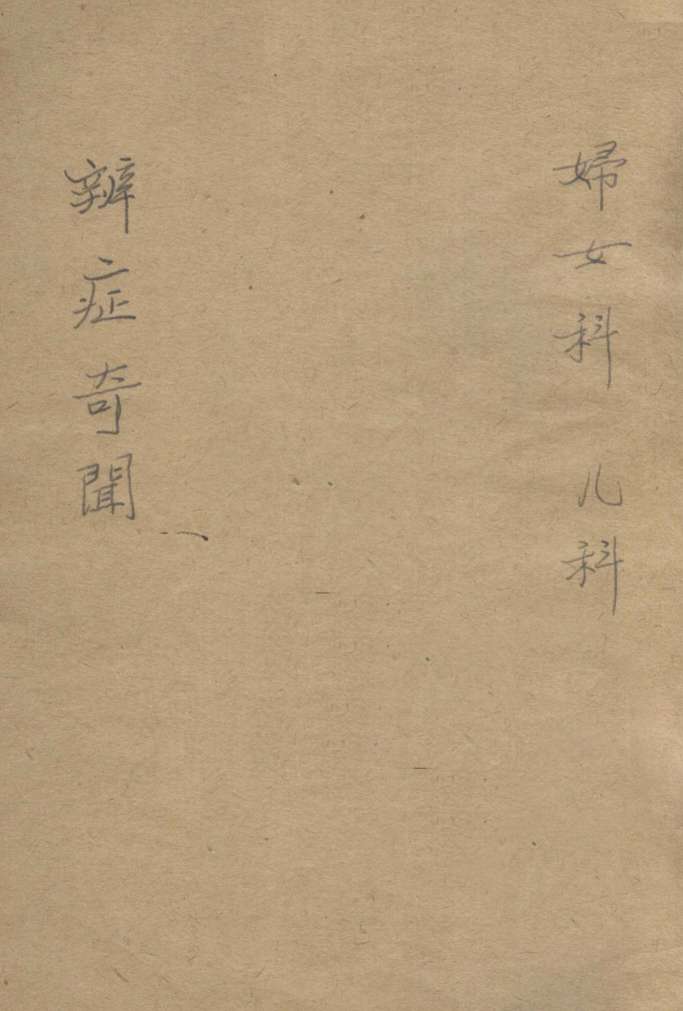 婦女科儿科
辨症奇聞